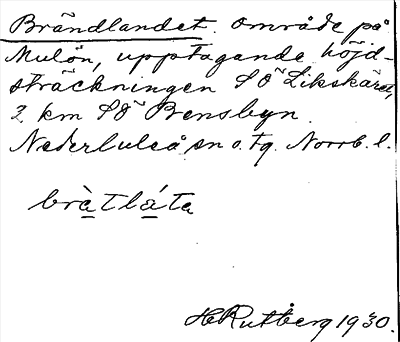 Brändlandet. område på
Mulön, upptagande höjd-
sträckningen SO Likskäret,
2 km SO Bensbyn.
Nederluleå sn o. tg. Norrb. l.
bràtláta
H Rutberg 1930.